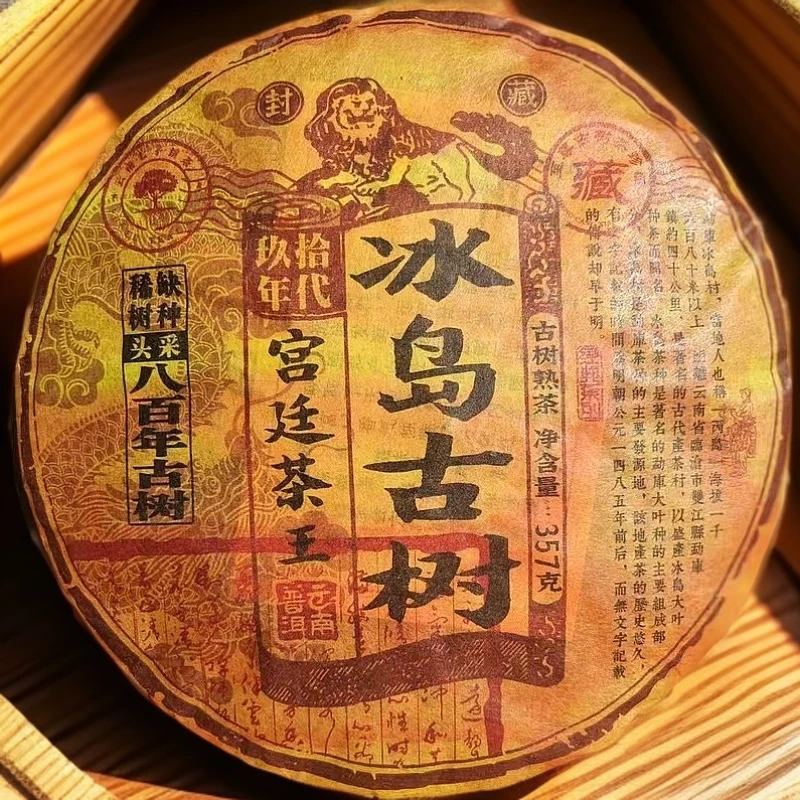 封 藏
藏
冰島古树
拾代
玖年
宫廷茶王
云南
普洱
古树熟茶 净含量：357克
缺种
稀树
头采
八百年古树
勐庫冰島村，當地人也稱「丙島」海拔一千
六百八十米以上，距離云南省臨滄市雙江縣勐庫
鎮約四十公里，是著名的古代產茶村，以盛產冰島大叶
种茶而聞名，冰島茶种是著名的勐庫大叶种的主要組成部
分，冰島村是勐庫茶种的主要發源地，該地產茶的歷史悠久，
有文字記載的時間爲明朝公元一四八五年前后，而無文字記載
的傳說却早于明。